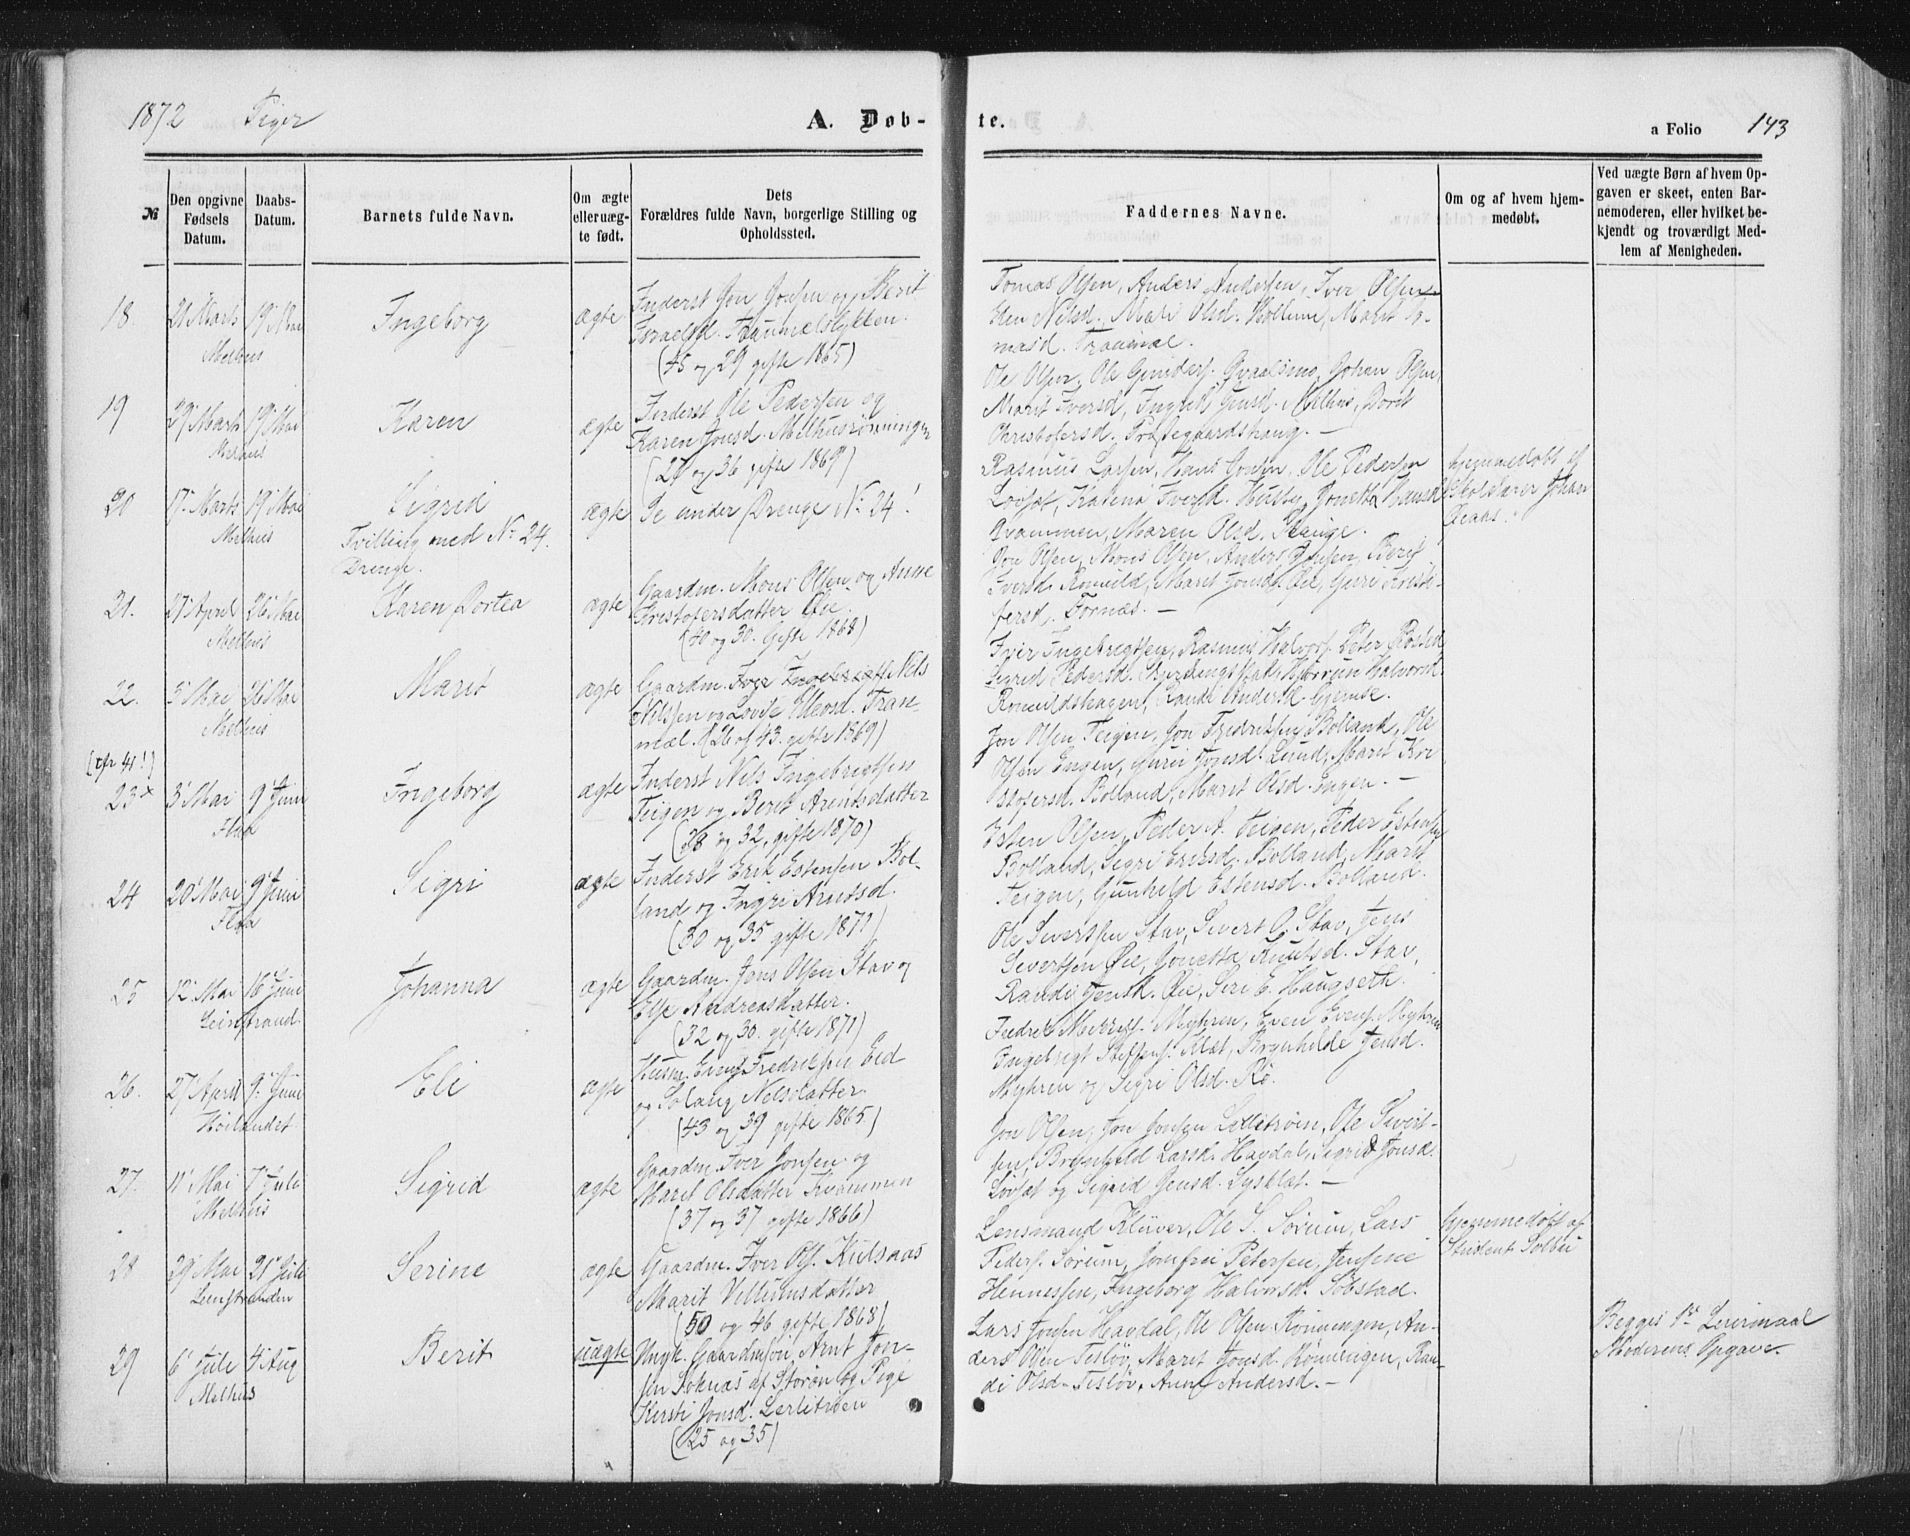 1872 Piger
A. Døb-
te.
a Folio 143
№
Den opgivne Fødsels Datum.
Daabs-Datum.
Barnets fulde Navn.
Om ægte eller uægte født.
Dets Forældres fulde Navn, borgerlige Stilling og Opholdssted.
Faddernes Navne.
Om og af hvem hjemmedøbt.
Ved uægte Børn af hvem Opgaven er skeet, enten Barnemoderen, eller hvilket bekjendt og troværdigt Medlem af Menigheden.
18. 21 Marts 19 Mai
Melhus
Ingeborg
ægte
Inderst Jon Jonsen og Berit
Israelsd.
(45 og 29 gifte 1865)
Tomas Olsen, Anders Andersen, Iver Olsen
Elen Nilsd. Mali Olsd. Marit To-
masd. Tranmæl.
19 29 Marts 19 Mai
Melhus
Karen
ægte
Inderst Ole Pedersen og
Karen Jonsd. Melhusrønningen
(27 og 36 gifte 1869)
Ole Olsen, Ole Gunders. Qvaalsmo, Johan Olsen,
Marit Iversd, Ingrid Jensd. Melhus, Dorit
Christofersd.
20 17 Marts 19 Mai
Melhus
Sigrid
Tvilling med No 24.
Drenge.
ægte
Se under Drenge No 24!
Rasmus Larsen, Hans Jonsen, Ole Pedersen
Iversd. Husby, Jonetta Hansd
Qvammen, Maren Olsd.
hjemmedøbt af
Skolelærer Johan
21. 27 April 26 Mai
Melhus
Karen Dortea
ægte
Gaardm. Mons Olsen og Anne
Cristofersdatter Øie.
(40 og 30. Gifte 1868)
Jon Olsen, Mons Olsen, Anders Jensen, Berit
Iversd. Romuld, Marit Jonsd. Øie, Guri Kristo-
fersd. Fornæs. —
22. 5 Mai 26 Mai
Melhus
Marit
ægte
Gaardm. Nils
Nilssen og Lovise Ellevsd. Tran-
mæl. (26 og 43. gifte 1869)
Iver Ingebregtsen, Rasmus Halvors. Peter Rosten
Sigrid Pedersd. Halvorsd.
Romuldshagen, Randi Andersd. Gjemse.
(cfr 41!)
23 x 3 Mai 9 Juni
Flaa
Ingeborg
ægte
Inderst Nils Ingebregtsen
Teigen og Berit Arentsdatter
(28 og 32, gifte 1870)
Jon Olsen Teigen, Jon Fredriksen Bolland, Ole
Olsen Engen, Guri Jonsd. Lund, Marit Kri-
stofersd. Bolland, Marit Olsd. Engen. —
24 20 Mai 9 Juni
Flaa
Sigri
ægte
Inderst Erik Estensen Bol-
land og Ingri Arntsd.
(30 og 35 gifte 1871)
Esten Olsen, Peder A. Teigen, Peder Estensen
Bolland, Sigri Eriksd. Bolland, Marit
Teigen, Gunhild Estensd. Bolland.
25 12 Mai 16 Juni
Leinstrand.
Johanna
ægte
Gaardm. Jens Olsen Stav og
Else Andreasdatter.
(32 og 30. gifte 1871)
Ole Sivertsen Stav, Sivert O. Stav, Jens
Sivertsen Øie, Jonetta Knutsd. Stav,
Randi Jensd. Øie, Siri E. Haugseth.
26. 27 April 9 Juni
Høilandet
Eli
ægte
Husm. Even Fredriksen Eid
og Solaug Nelsdatter.
(43 og 39 gifte 1865)
Myhren, Even Evens. Myhren
Ingebrigt Steffens. Klæt, Brynhilde Jensd.
Myhren og Sigri Olsd. Rø.
27. 11 Mai 7 Juli
Melhus
Sigrid
ægte
Gaardm. Iver Jonsen og
Marit Olsdatter Kvammen
(37 og 37 gifte 1866)
Jon Olsen, Jon Jonsen Ole Sivert-
sen, Brynhild Larsd. Havdal, Sigrid Jonsd.
Løvset og Sigrid Jensd. Lysklæt. —
28 29 Mai 21 Juli
Leinstranden
Serine
ægte
Gaardm. Iver Ols. Kulsaas
Marit Villumsdatter
(50 og 46 gifte 1868)
Lensmand Klüver, Ole S. Sørum, Lars
Peders. Sørum, Jomfru Petersen, Jensine
Hennessen, Ingeborg Halvorsd. Sobstad.
hjemmedøbt af
Student Solbu
29 6 Juli 4 Aug
Melhus
Berit
uægte
Ungk. Gaardmsøn Arnt Jon-
sen Soknæs af Støren og Pige
Kersti Jonsd. Lerlitrøen
(25 og 35)
Lars Jonsen Havdal, Ole Olsen Rønningen, An-
ders Olsen Tesløv, Marit Jonsd. Rønningen, Ran-
di Olsd. Tesløv, Anne Andersd. —
Begges 1st Leiermaal
Moderens Opgave.